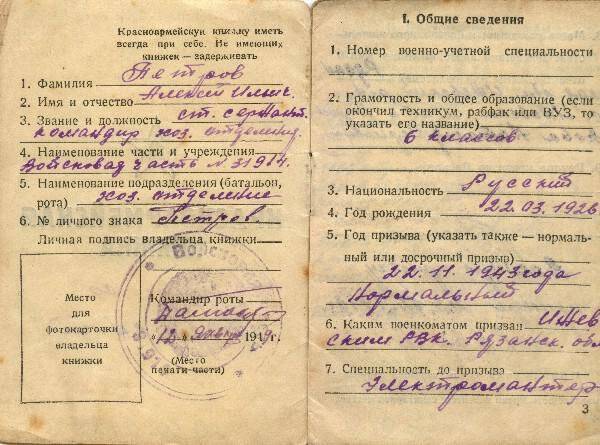 Красноармейскую книжку иметь
всегда при себе. Не имеющих
книжек — задерживать
1. Фамилия Петров
2. Имя и отчество Алексей Ильич.
3. Звание и должность ст. сержант.
командир хоз. отделения
4. Наименование части и учреждения
Войсковая часть N 31984.
5. Наименование подразделения (батальон,
рота) хоз. отделение
6. № личного знака Петров.
Личная подпись владельца книжки
Место
для
фотокарточки
владельца
книжки
Командир роты
"12" января 1949г.
(Место
печати части)
1. Общие сведения
1. Номер военно-учетной специальности
2. Грамотность и общее образование (если
окончил техникум, рабфак или ВУЗ, то
указать его название)
6 классов
3. Национальность Русский
4. Год рождения 22.03.1926
5. Год призыва (указать также — нормаль-
ный или досрочный призыв)
22.11.1943 года
Нормальный
6. Каким военкоматом призван Ижев
ским РВК. Рязанск. обл
7. Специальность до призыва
Электромонтер
3